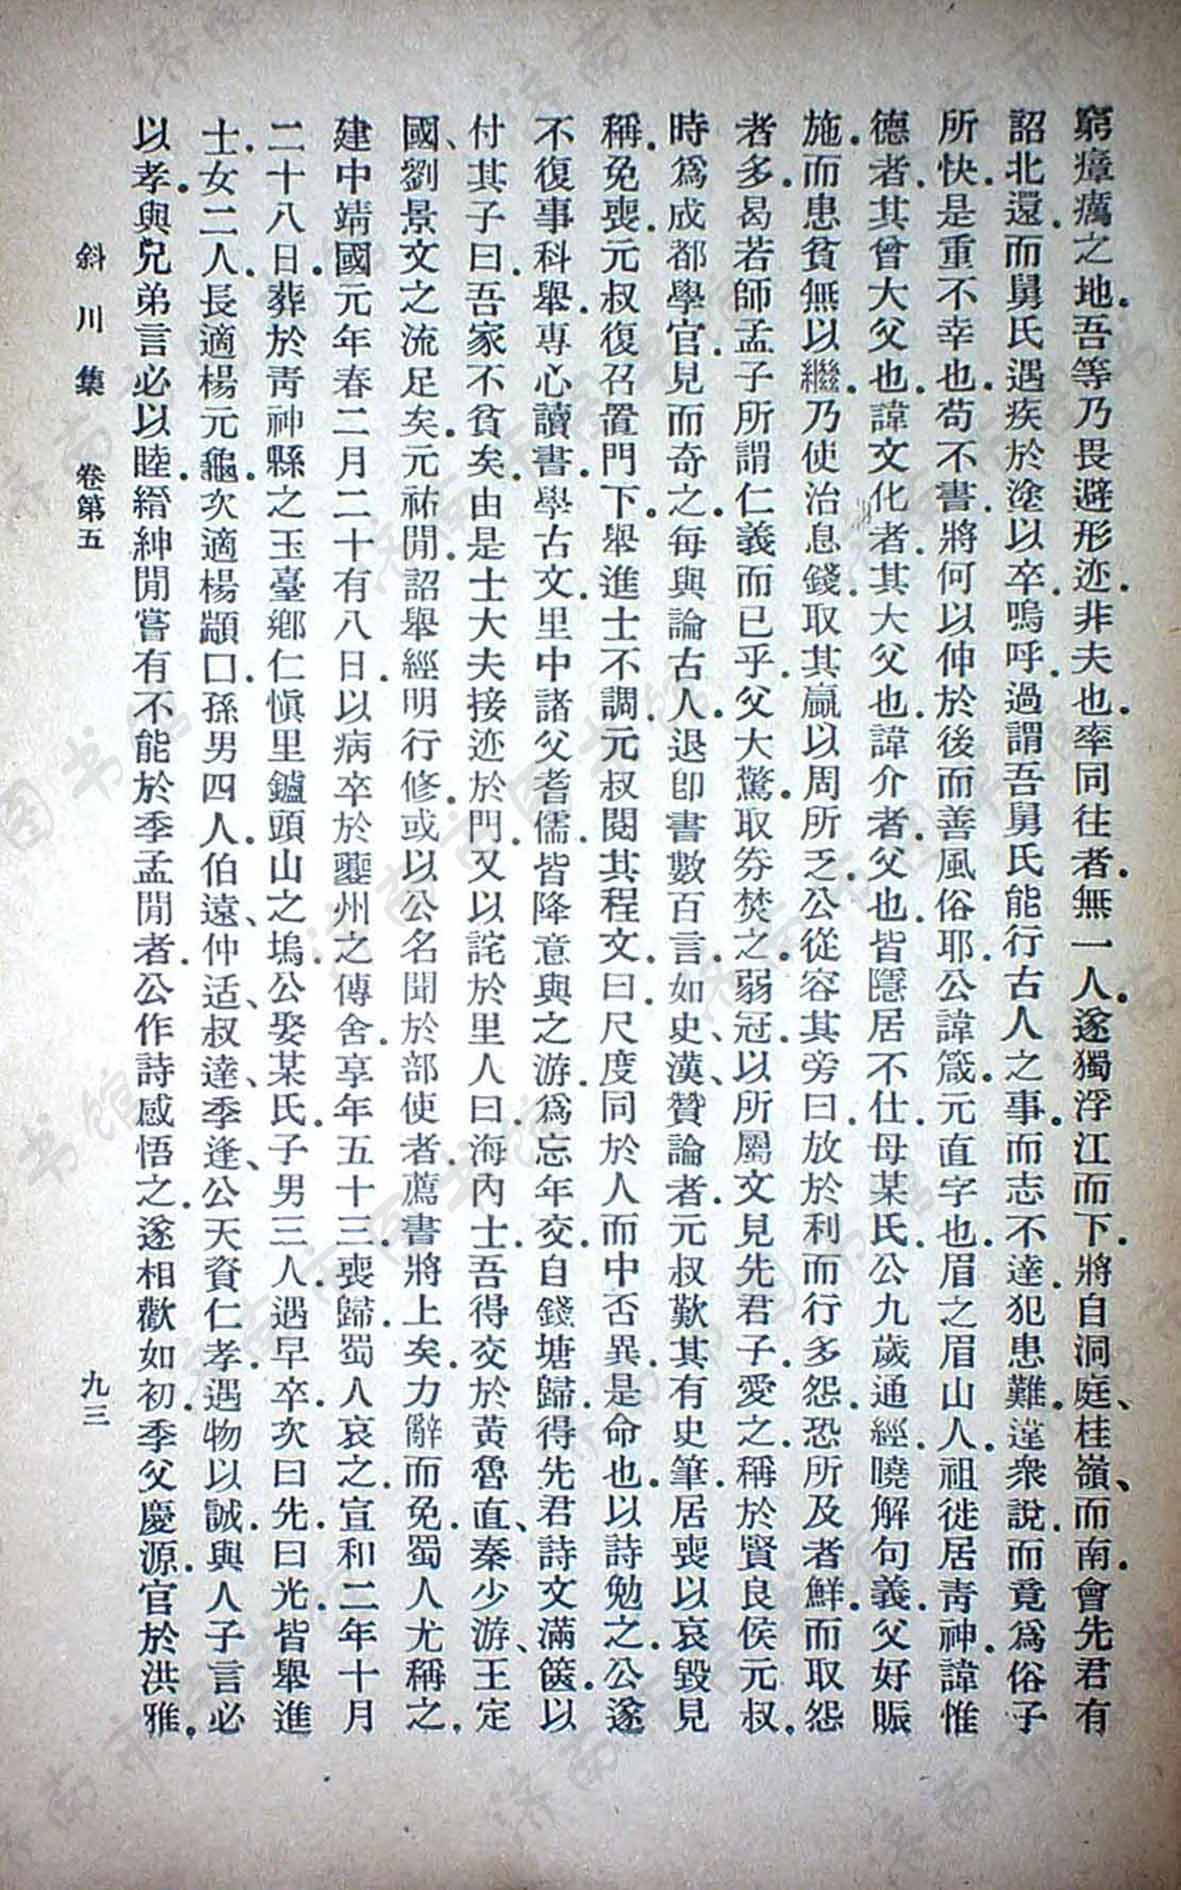 窮瘴癘之地．吾等乃畏避形迹．非夫也．率同往者．無一人．遂獨浮江而下．將自洞庭、桂嶺、而南．會先君有
詔北還．而舅氏遇疾於塗以卒．嗚呼．過謂吾舅氏能行古人之事．而志不達．犯患難．違衆說．而竟爲俗子
所快．是重不幸也．苟不書．將何以伸於後而善風俗耶．公諱箴．元直字也．眉之眉山人．祖徙居青神．諱惟
德者．其曾大父也．諱文化者．其大父也．諱介者．父也．皆隱居不仕．母某氏．公九歲通經．曉解句義．父好賑
施．而患貧無以繼．乃使治息錢．取其贏以周所乏．公從容其旁曰．放於利而行．多怨．恐所及者鮮．而取怨
者多．曷若師孟子所謂仁義而已乎．父大驚．取券焚之．弱冠．以所屬文見先君子．愛之．稱於賢良侯元叔．
時爲成都學官．見而奇之．每與論古人．退卽書數百言．如史、漢、贊論者．元叔歎其有史筆．居喪以哀毀見
稱．免喪．元叔復召置門下．舉進士不調．元叔閱其程文．曰．尺度同於人而中否異．是命也．以詩勉之．公遂
不復事科舉．專心讀書．學古文．里中諸父耆儒．皆降意與之游．爲忘年交．自錢塘歸．得先君詩文滿篋．以
付其子曰．吾家不貧矣．由是士大夫接迹於門．又以詫於里人曰．海內士．吾得交於黃魯直、秦少游、王定
國、劉景文之流足矣．元祐閒．詔舉經明行修．或以公名聞於部使者．薦書將上矣．力辭而免．蜀人尤稱之．
建中靖國元年春二月二十有八日．以病卒於夔州之傳舍．享年五十三．喪歸．蜀人哀之．宣和二年十月
二十八日．葬於青神縣之玉臺鄉仁愼里鑪頭山之塢．公娶某氏．子男三人．遇早卒．次曰先．曰光．皆舉進
士．女二人．長適楊元龜．次適楊顓囗．孫男四人．伯遠、仲适、叔達、季逢、公天資仁孝．遇物以誠．與人子言必
以孝．與兄弟言必以睦．縉紳閒嘗有不能於季孟閒者．公作詩感悟之．遂相歡如初．季父慶源．官於洪雅．
斜川集 卷第五 九三